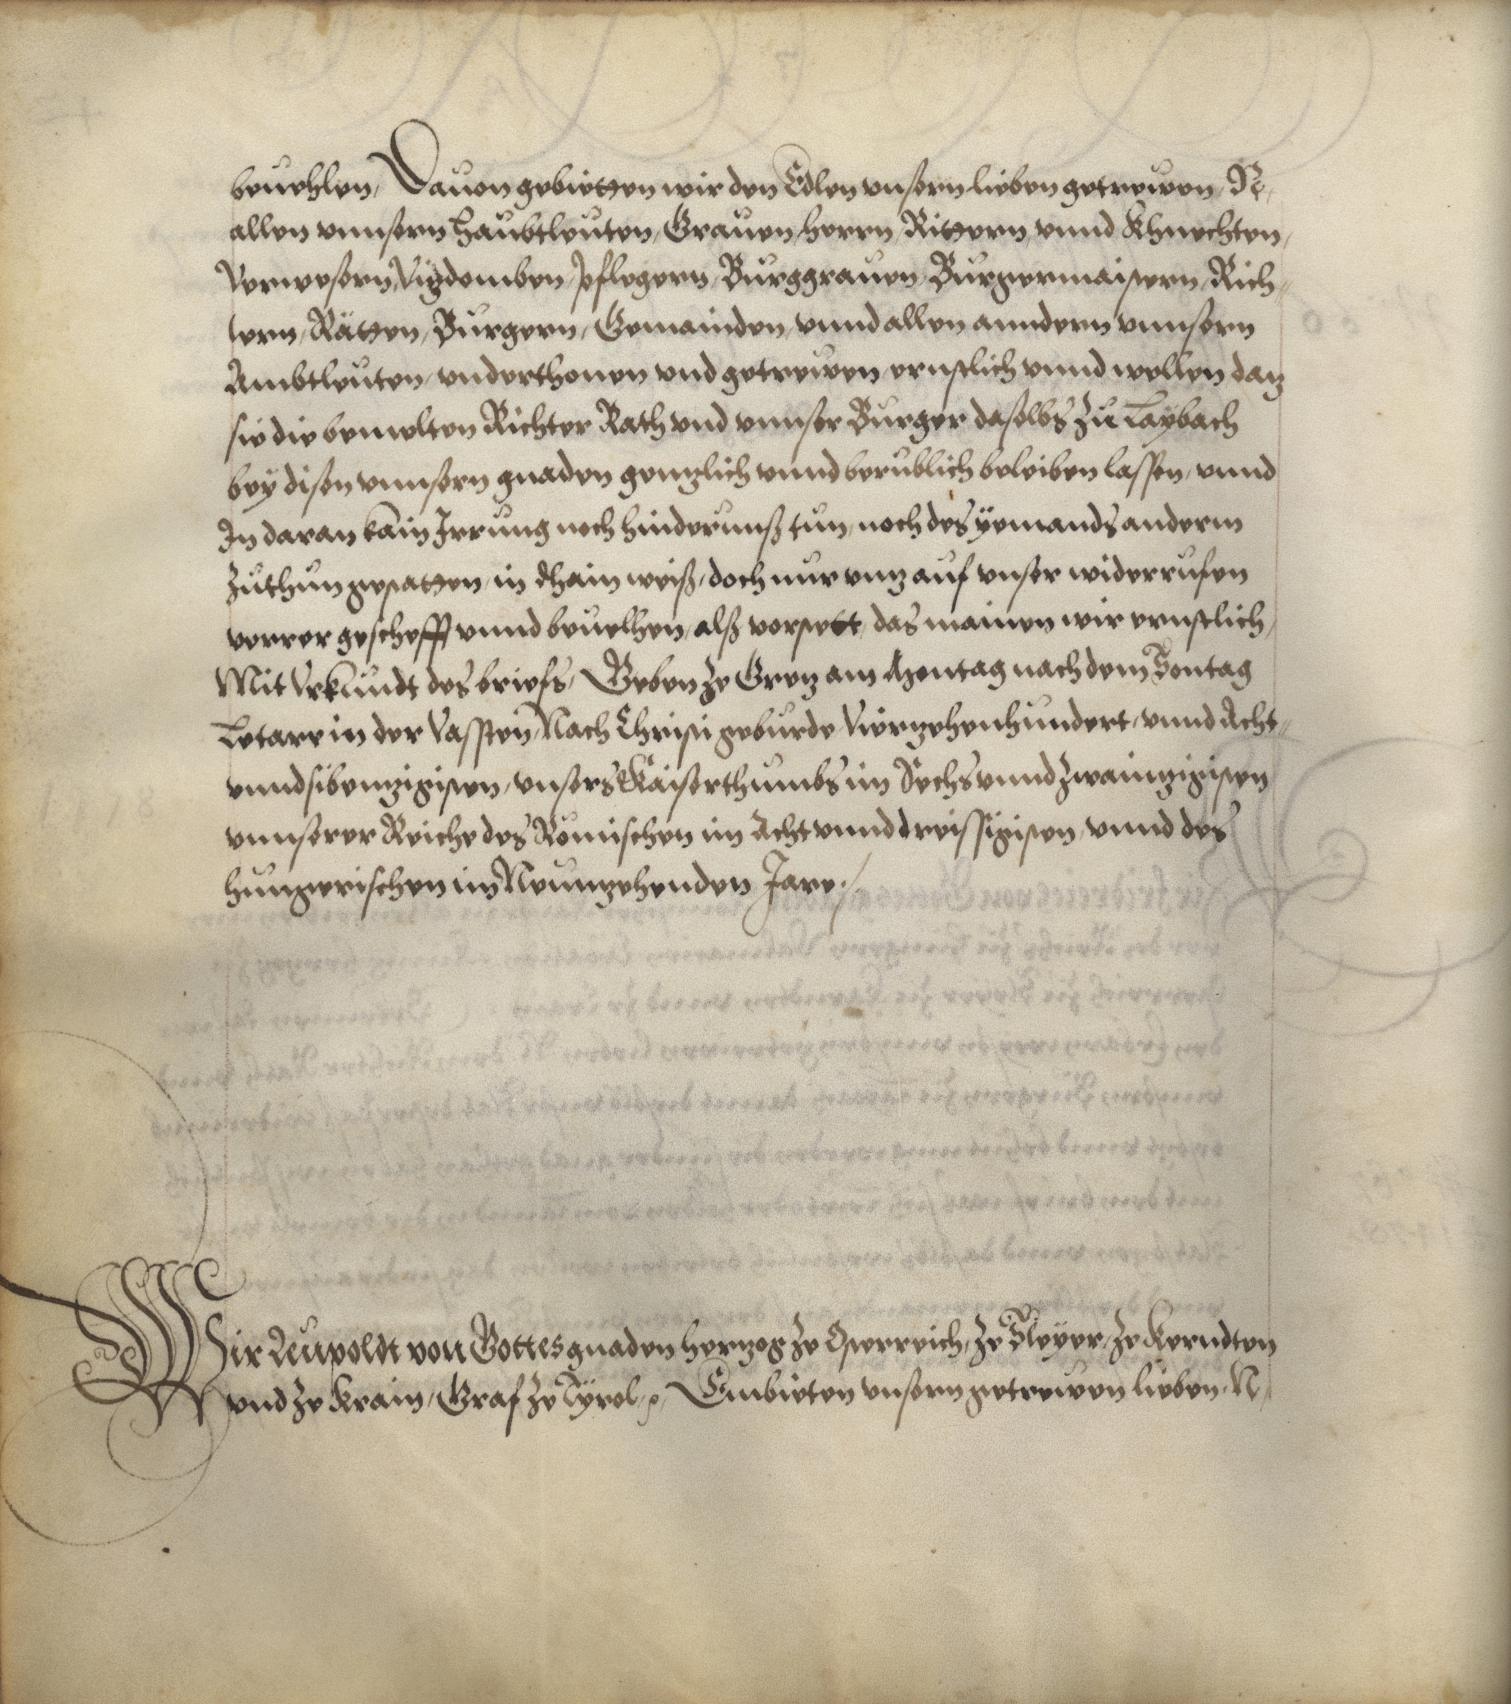 beuehlen, Dauon gebietten wir den Edlen vnsern lieben getrewen, N:
allen vnnsern Haubtleuten, Grauen, herrn, Rittern, vnnd Khnechten,
Verwesern, Vizdomben, Pflegern, Burggrauen, Burgermaistern, Rich-
tern, Rätten, Burgern, Gemainden, vnnd allen anndern vnnsern
Ambtleuten, vnderthonen vnd getrewen ernstlich vnnd wellen daz
sie die bemelten Richter Rath vnd vnnser Burger daselbs zu Laybach
bey disen vnnsern gnaden genzlich vnnd berublich beleiben lassen, vnnd
In daran kain Irrung noch hinderunß tun, noch des yemands anderm
Zuthun gestatten, in dhain weiß, doch nur vnz auf vnser widerrufen
verrer geschefft vnnd beuelhen, alß vorstett, das mainen wir ernstlich,
Mit Vrkundt des briefs, Geben ze Grez am Montag nach dem Sontag
Letare in der Vassten, Nach Christi geburde Vierzehenhundert, vnnd Acht-
vnnd sibenzigisten, vnsers Kaiserthumbs im Sechs vnnd zwainzigisten
vnnserer Reiche des Römischen im Acht vnnd dreissigisten, vnnd des
hungerischen im Neunzehenden Jare./
Wir Leupoldt von Gottes gnaden herzog ze Osterreich, ze Steyer, ze Kerndten
vnd ze Krain, Graf ze Tyrol, Embieten vnsern getrewen lieben, N,